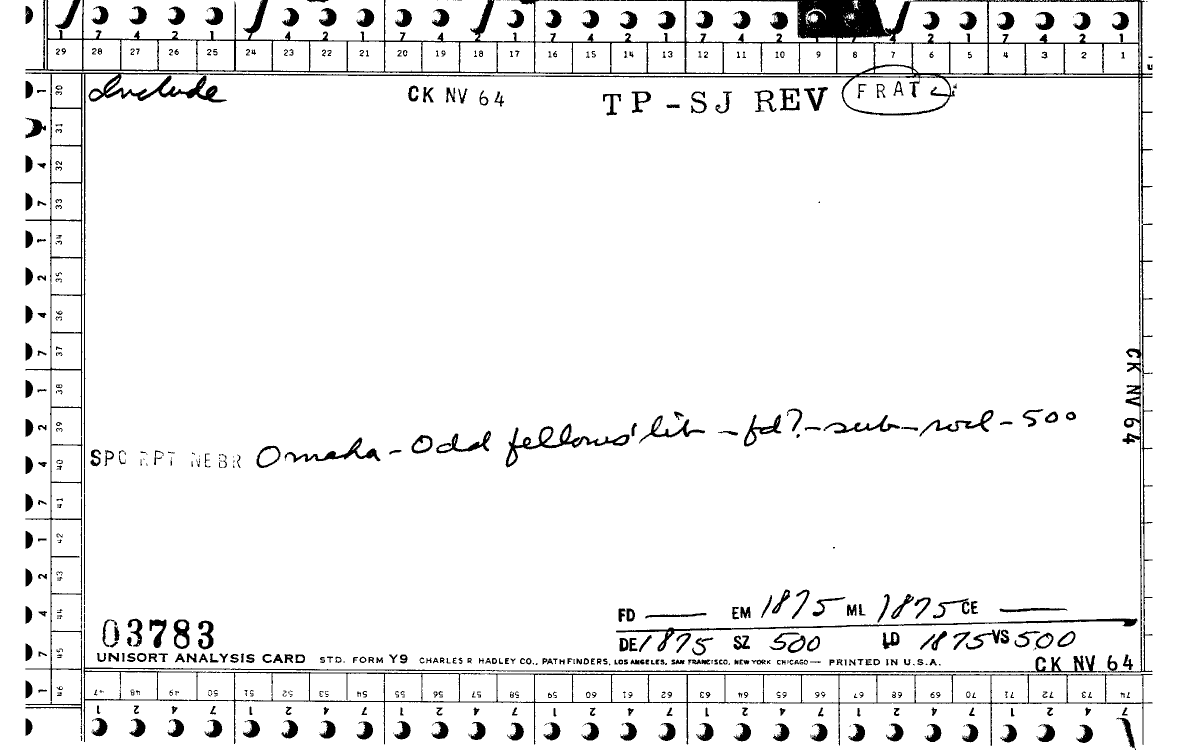 1 7 4 2 1 7 4 2 1 7 4 2 1 7 4 2 1 7 4 2 1 7 4 2 1
29 28 27 26 25 24 23 22 21 20 19 18 17 16 15 14 13 12 11 10 9 8 7 6 5 4 3 2 1
Include CK NV 64 TP-SJ REV FRAT
30 31 32 33 34 35 36 37 38 39 40 41 42 43 44 45 46
CK NV 64
SPC RPT NEBR Omaha - Odd fellows' lib - fd? - sub - socl - 500
FD — EM 1875 ML 1875 CE —
03783 DE 1875 SZ 500 LD 1875 VS 500
UNISORT ANALYSIS CARD STD. FORM Y9 CHARLES R HADLEY CO., PATHFINDERS, LOS ANGELES, SAN FRANCISCO, NEW YORK CHICAGO — PRINTED IN U.S.A.
CK NV 64
47 48 49 50 51 52 53 54 55 56 57 58 59 60 61 62 63 64 65 66 67 68 69 70 71 72 73 74
1 2 4 7 1 2 4 7 1 2 4 7 1 2 4 7 1 2 4 7 1 2 4 7 1 2 4 7